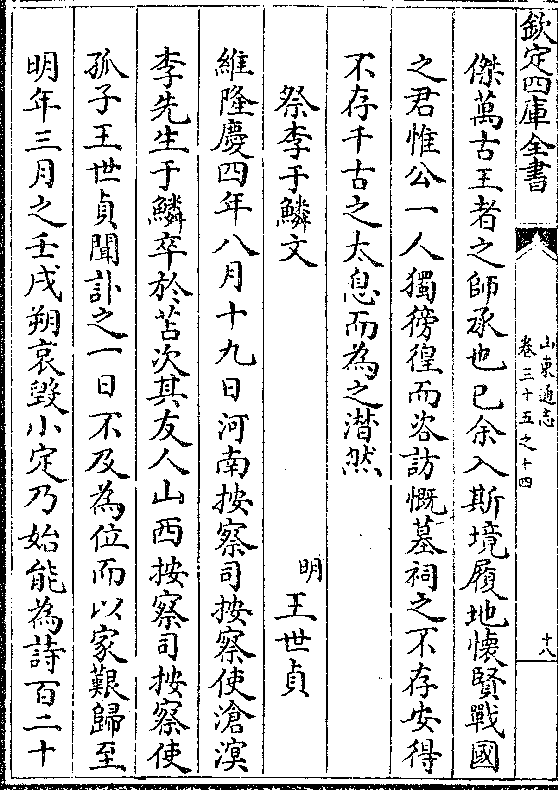 欽定四庫全書
山東通志
卷三十五之十四
十八
傑萬古王者之師承也已余入斯境履地懐賢戰國
之君惟公一人獨徬徨而咨訪慨墓祠之不存安得
不存千古之太息而為之潸然
祭李于鱗文
明
王世貞
維隆慶四年八月十九日河南按察司按察使滄溟
李先生于鱗卒於苫次其友人山西按察司按察使
孤子王世貞聞訃之一日不及為位而以家艱歸至
明年三月之壬戌朔哀毀小定乃始能為詩百二十